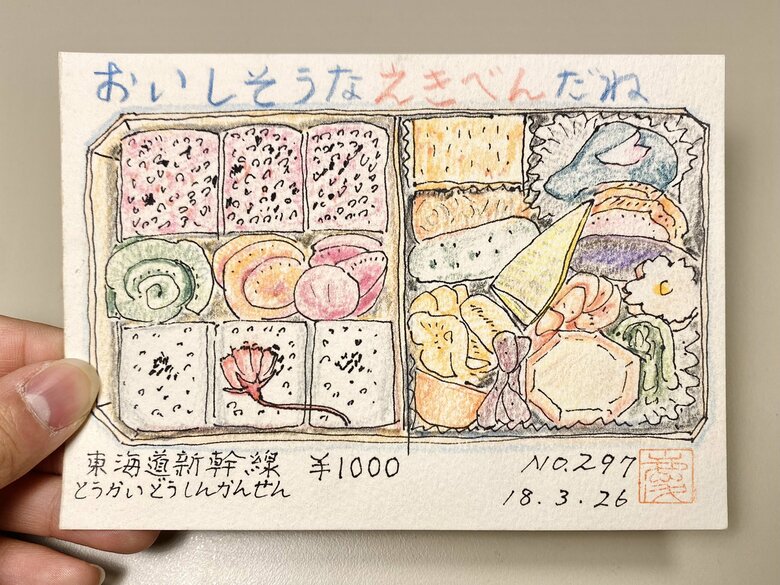 おいしそうなえきべんだね
東海道新幹線 ¥1000
とうかいどうしんかんせん
NO.297
18.3.26